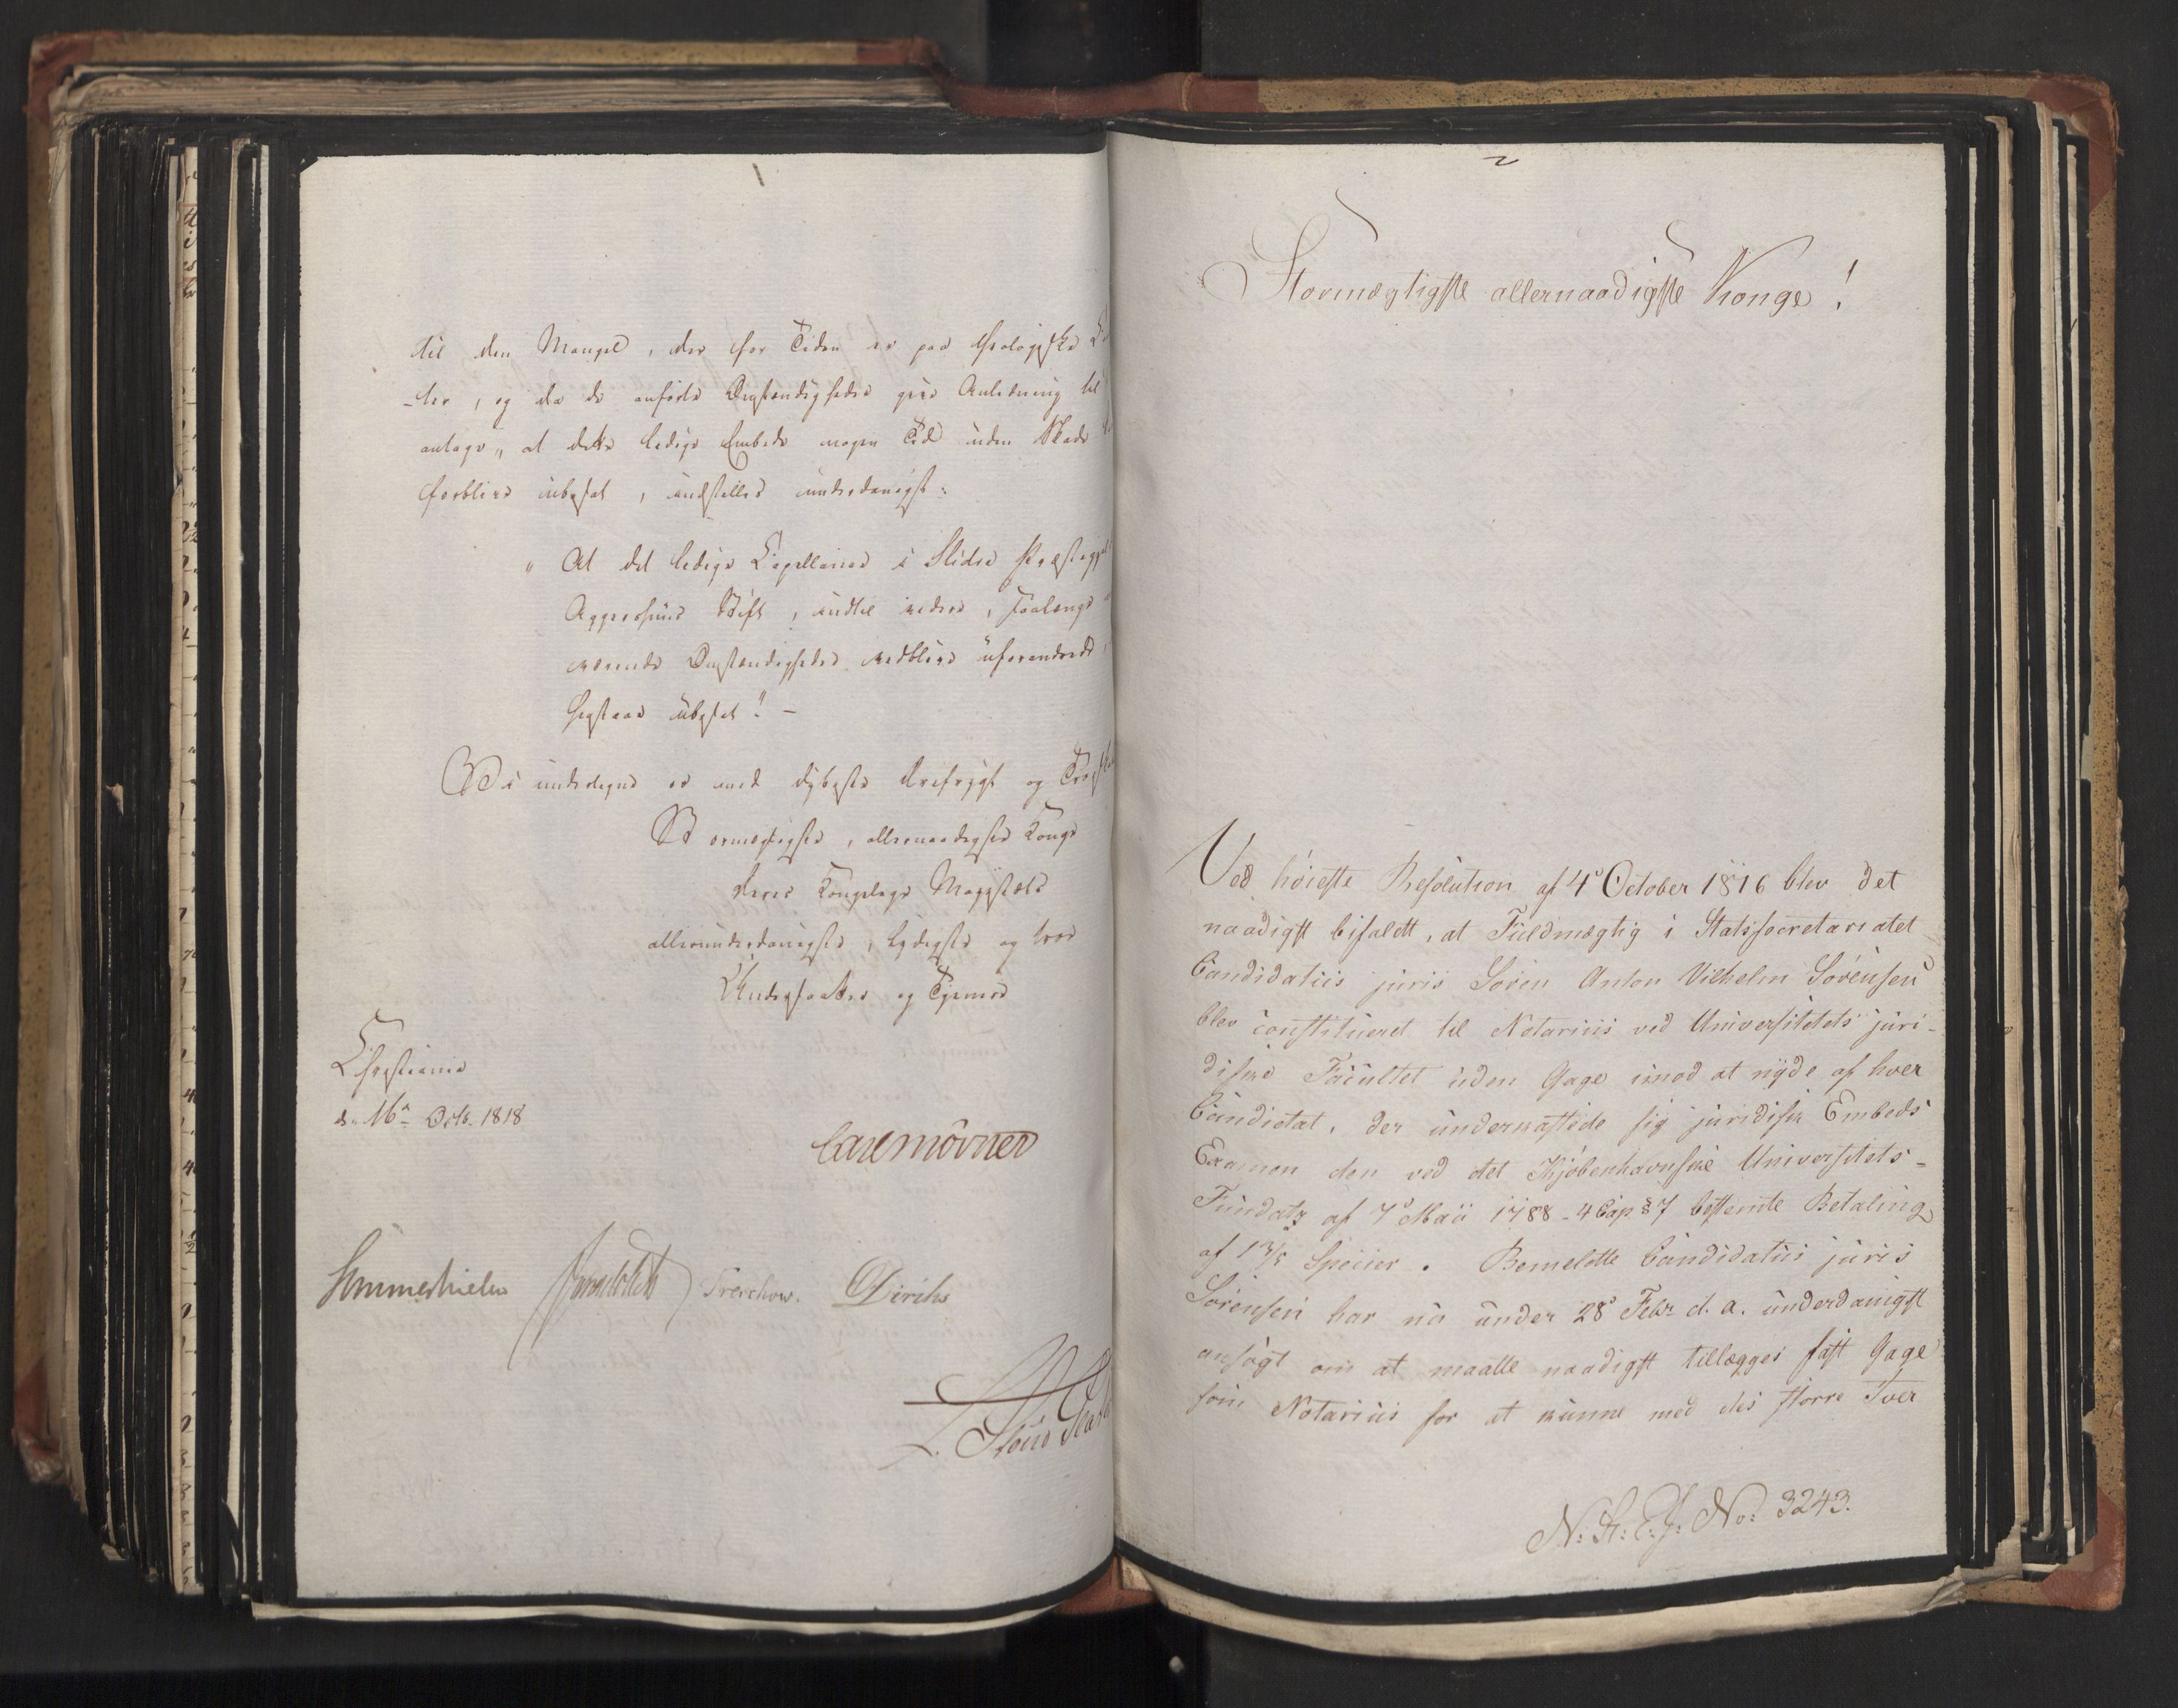 til den Mangel, der for Tiden er paa theologiske
-ter, og da de anførte Omstændigheder give Anledning til
antage, at dette ledige Embede nogen Tid uden Skade
forblive ubesat, indstilles underdanigst:
" At det ledige Capellanie i Slidre Præstegjeld
Aggershuus Stift, indtil videre, saalænge
værende Omstændigheder vedblive uforandrede,
henstaae ubesat"! -
Vi undertegne os med dybeste Ærefrygt og
Stormægtigste, allernaadigste Konge
Deres Kongelige Majestæts
allerunderdanigste, lydigste og troe
Undersaatter og Tjenere
Christiania
d. 16de Octb. 1818
Carl Mörner
Sommerhielm Treschow. Diriks
2
Stormægtigste allernaadigste Konge!
Ved höieste Resolution af 4de October 1816 blev det
naadigst bifaldt, at Fuldmægtig i Statssecretariatet
Candidatus juris Sören Anton Vilhelm Sörensen
blev constitueret til Notarius ved Universitetets juri-
diske Facultet uden Gage imod at nyde af hver
Candidat, der underkastede sig juridisk Embeds
Examen den ved det Kjöbenhavnske Universitets-
Fundatz af 7de Maii 1788 - 4 Cap § 7 bestemte Betaling
af 1 3/5 Specier. Bemeldte Candidatus juris
Sörensen har nu under 28de Febr. d. a. underdanigst
ansögt om at maatte naadigst tillægges fast Gage
som Notarius for at kunne med des större Iver
N: St: E: No: 3243.